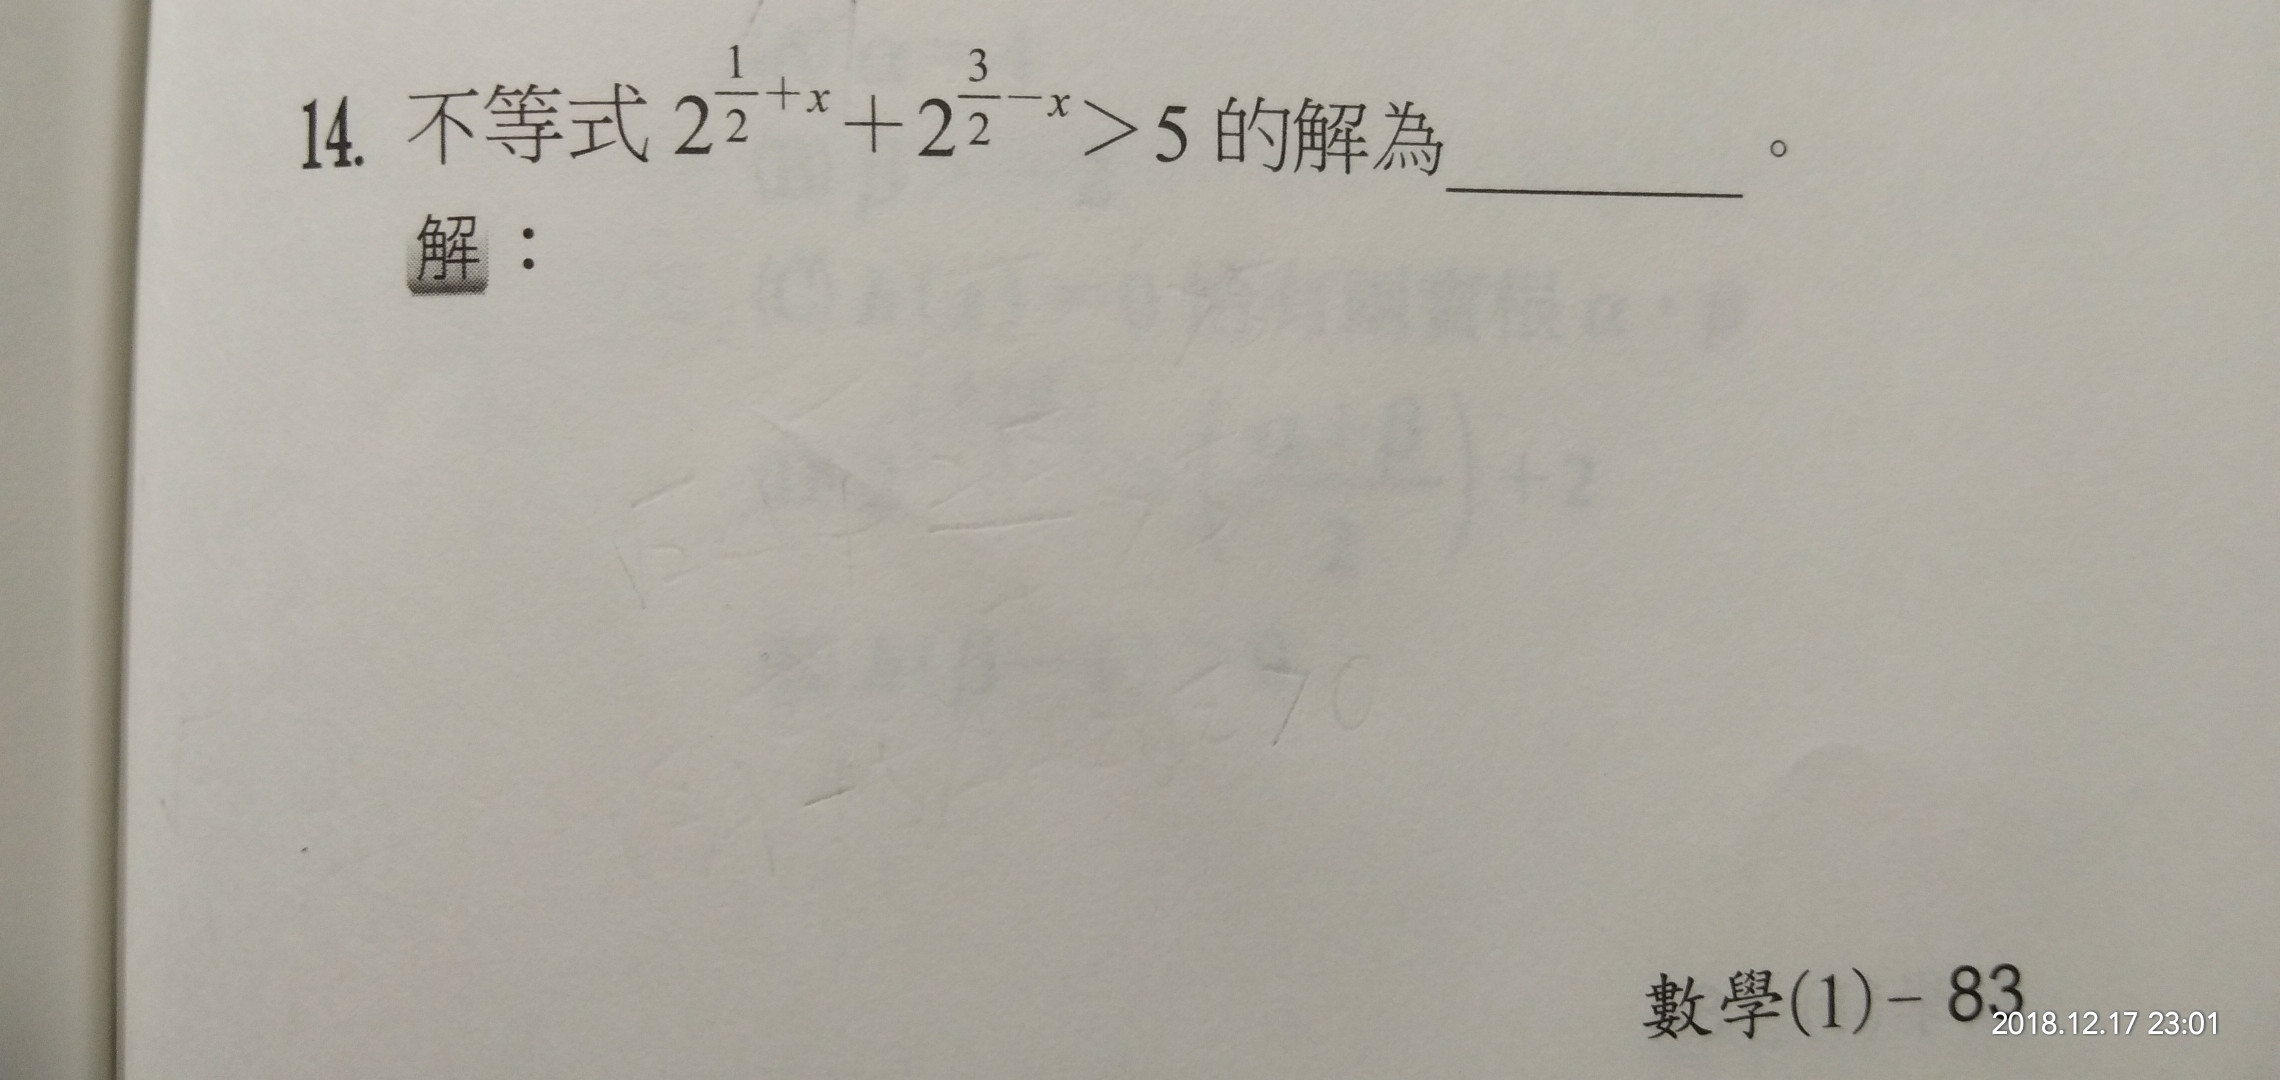 14. 不等式 2^{\frac{1}{2}+x}+2^{\frac{3}{2}-x}>5 的解為______。
解：
數學(1)－83
2018.12.17 23:01